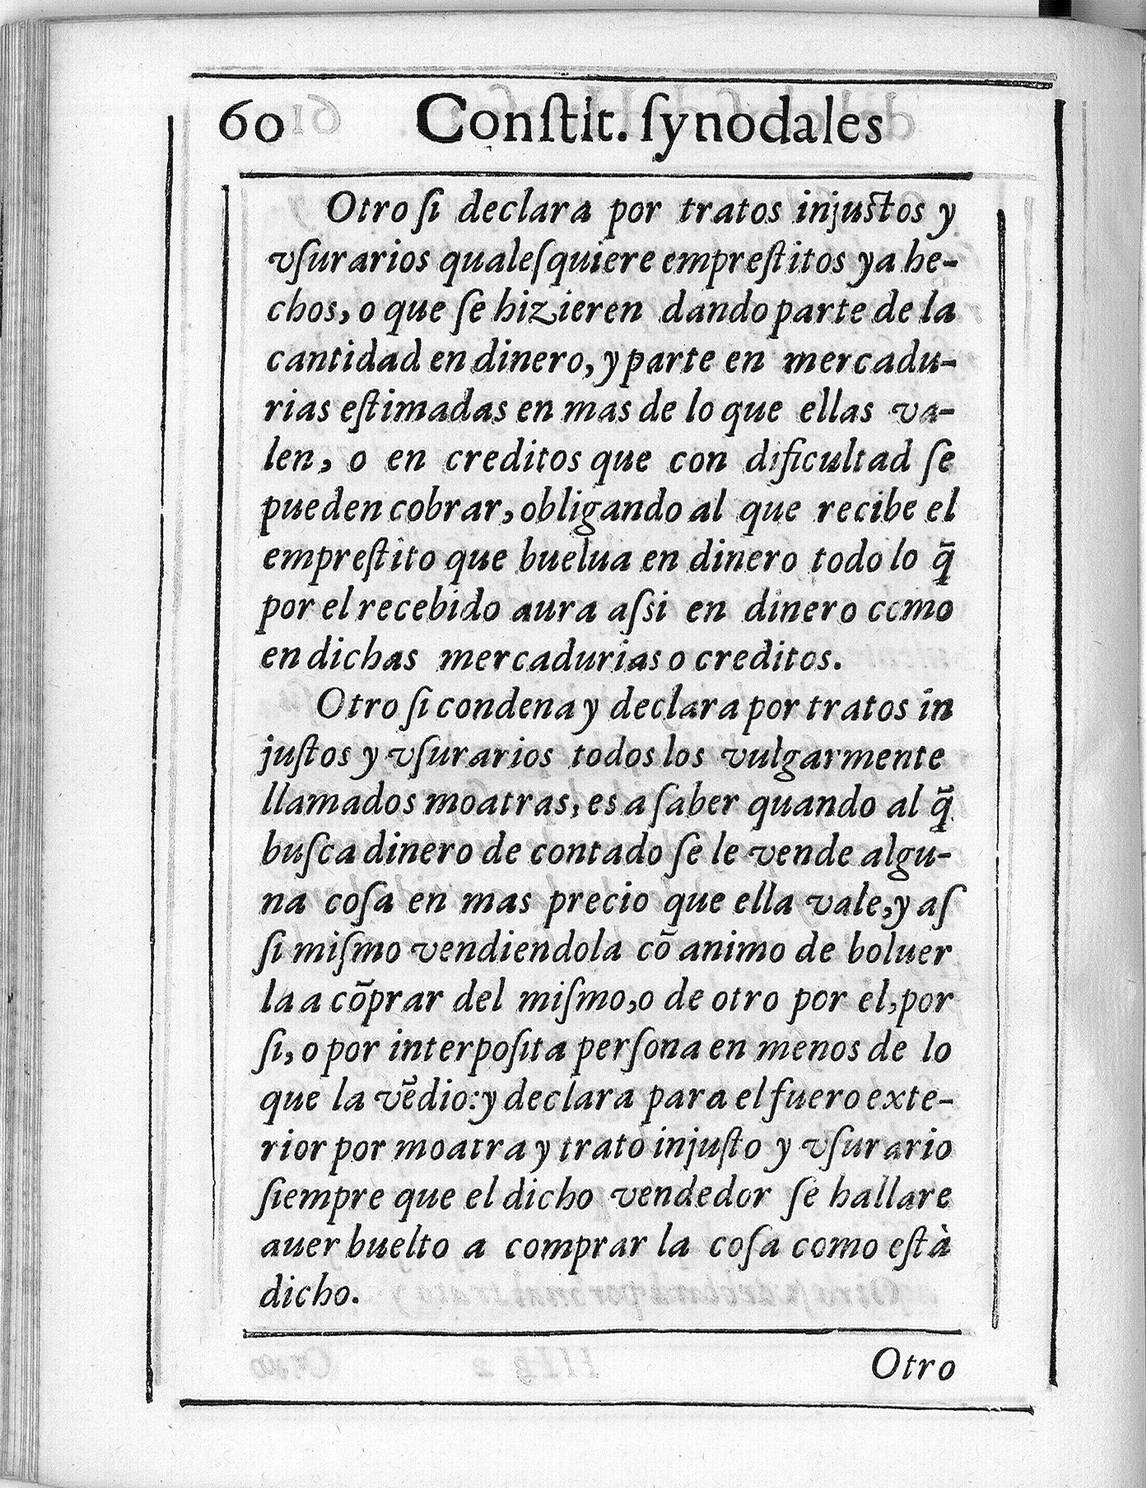 60 Conſtit. ſynodales
Otro ſi declara por tratos injuſtos y
vſurarios qualeſquiere empreſtitos ya he-
chos, o que ſe hizieren dando parte de la
cantidad en dinero, y parte en mercadu-
rias eſtimadas en mas de lo que ellas va-
len, o en creditos que con dificultad ſe
pueden cobrar, obligando al que recibe el
empreſtito que buelua en dinero todo lo q̃
por el recebido aura aſsi en dinero como
en dichas mercadurias o creditos.
Otro ſi condena y declara por tratos in
juſtos y vſurarios todos los vulgarmente
llamados moatras, es a ſaber quando al q̃
buſca dinero de contado ſe le vende algu-
na coſa en mas precio que ella vale, y aſ
ſi miſmo vendiendola cõ animo de boluer
la a cõprar del miſmo, o de otro por el, por
ſi, o por interpoſita perſona en menos de lo
que la vẽdio: y declara para el fuero exte-
rior por moatra y trato injuſto y vſurario
ſiempre que el dicho vendedor ſe hallare
auer buelto a comprar la coſa como eſtà
dicho.
Otro